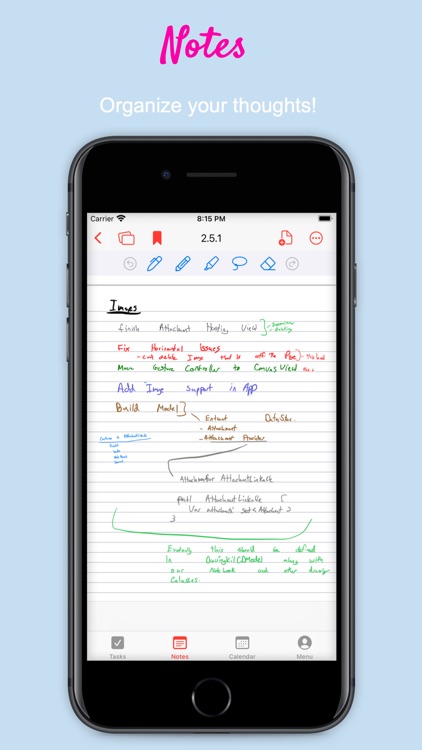 Notes
Organize your thoughts!
Carrier 8:15 PM
2.5.1
Images
finish Attachment Hosting View
Fix Horizontal Issues
- cant delete Image that is off the Page
Move Gesture Controller to Canvas View
Add Image support in App
Build Model
- Extract DataStore.
- Attachment
- Attachment Provider
AttachmentLinkable
AttachmentLinkable {
Var attachments: set<Attachment>
}
Eventually this should be defined
in DrawingKit(CDModel) along with
our Notebook and other
Calasses.
Tasks Notes Calendar Menu